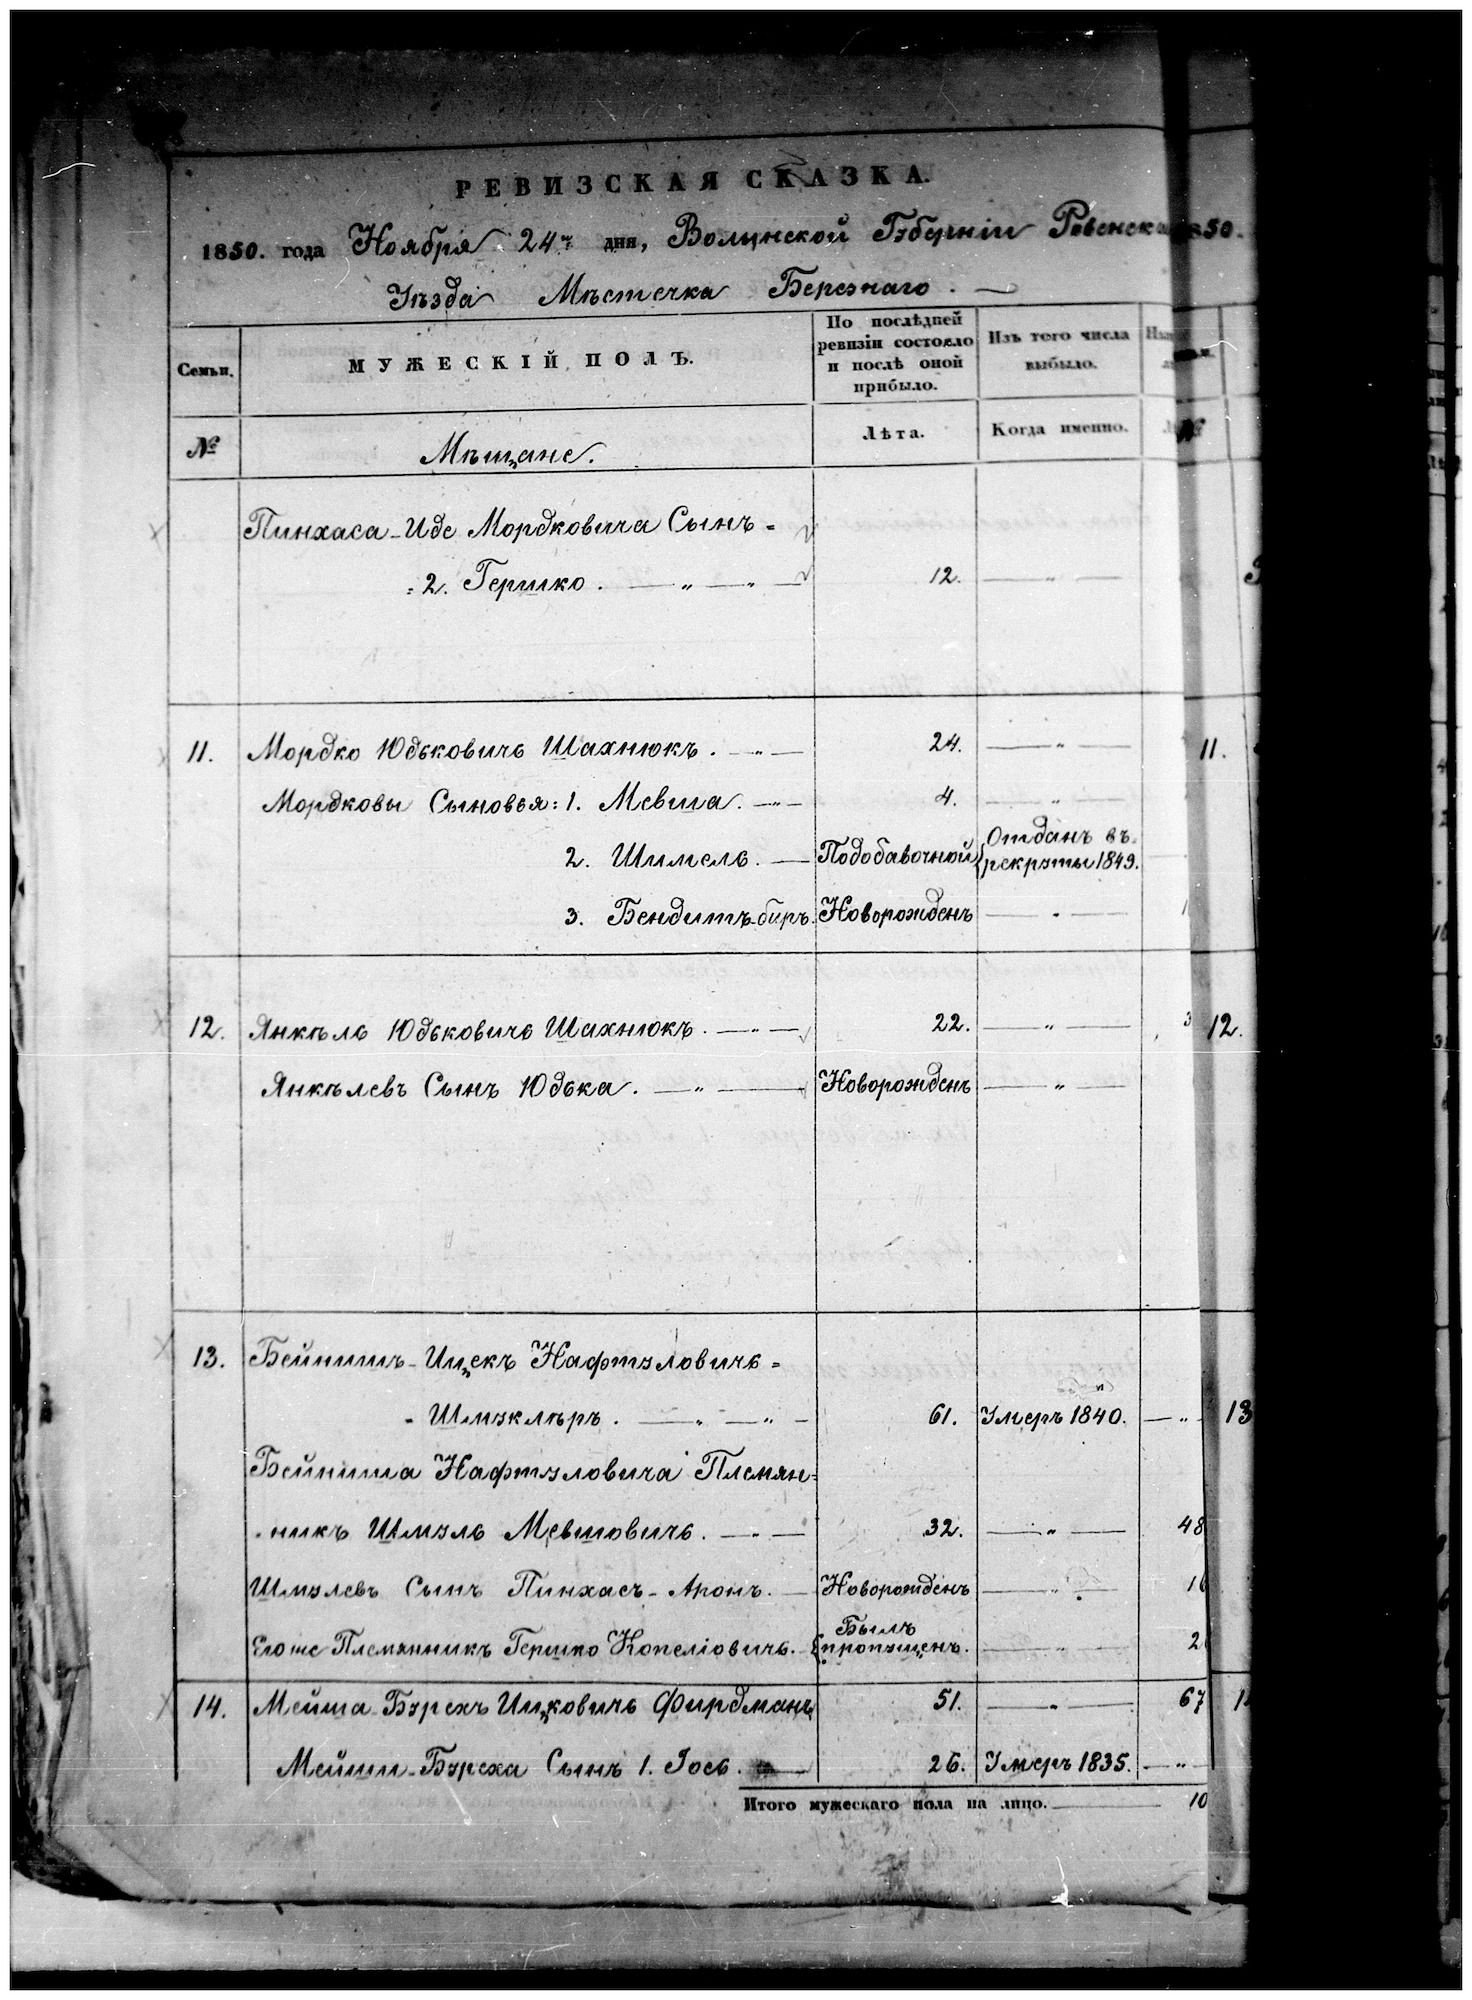 РЕВИЗСКАЯ СКАЗКА.
1850. года Ноября 24го дня, Волынской Губерніи Ровенска 50.
Уѣзда Мѣстечка Березнаго. —
Семьи.
МУЖЕСКІЙ ПОЛЪ.
По послѣдней ревизіи состояло и послѣ оной прибыло.
Изъ того числа выбыло.
№
Мѣщане.
Лѣта.
Когда именно.
Пинхаса-Иде Мордковича Сынъ =
= 2. Гершко. — „ — „ — 12. — „ —
11. Мордко Юдьковичь Шахнюкъ. — „ — 24. — „ — 11.
Мордковы Сыновья: 1. Мевша. — „ — 4. — „ —
2. Шимель. — Подобавочной Отданъ въ рекруты 1849.
3. Бендитъ-биръ. Новорожденъ — „ —
12. Янкѣль Юдьковичь Шахнюкъ. — „ — 22. — „ — 3 12.
Янкѣлевъ Сынъ Юдька. — „ — Новорожденъ — „ —
13. Бейнишъ-Ицекъ Нафтуловичь =
= Шмуклѣръ. — „ — „ — 61. Умеръ 1840. — „ — 13
Бейниша Нафтуловича Племян=
=никъ Шмуль Мевшовичь. — „ — 32. — „ — 48
Шмулевъ Сынъ Пинхасъ-Аронъ. — Новорожденъ — „ — 16
Егоже Племянникъ Гершко Копеліовичь. — Былъ пропущенъ. — „ — 2
14. Мейша-Бурехъ Ицковичь Фирдманъ 51. — „ — 67 1
Мейши-Буреха Сынъ 1. Іось. — 26. Умеръ 1835. — „ —
Итого мужескаго пола на лицо. — 10